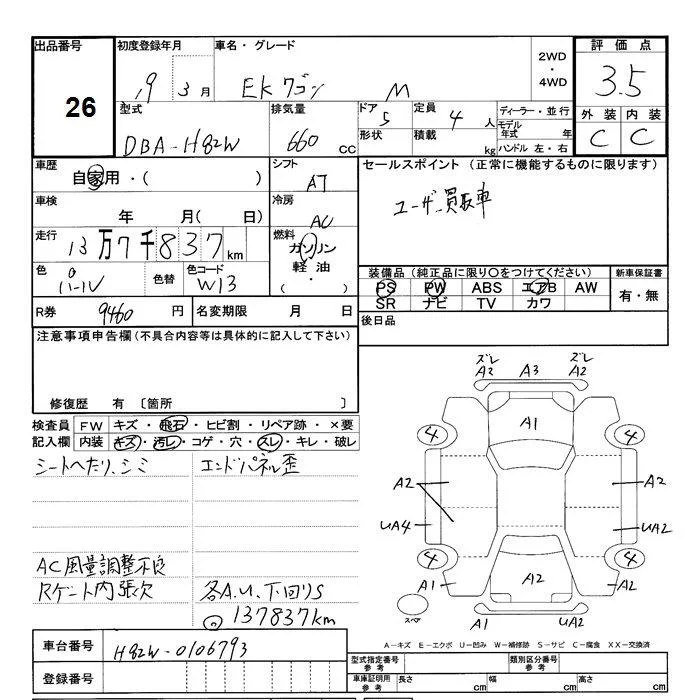 出品番号 初度登録年月 車名・グレード 評価点
26 19 3月 EKワゴン M 2WD・4WD 3.5
型式 排気量 ドア 5 定員 4人 ディーラー・並行 外装 内装
DBA-H82W 660cc 形状 積載 kg モデル年式 年 C C
ハンドル 左・右
車歴 シフト セールスポイント (正常に機能するものに限ります)
自家用・( ) AT ユーザー買取車
車検 冷房
年 月( 日) AC
走行 燃料
13万7千837km ガソリン
軽油
・( )
色 色替 色コード 装備品(純正品に限り○をつけてください) 新車保証書
パール W13 PS PW ABS エアB AW 有・無
SR ナビ TV カワ
R券 9460円 名変期限 月 日 後日品
注意事項申告欄(不具合内容等は具体的に記入して下さい)
修復歴 有 〔箇所 〕
検査員 FW キズ・飛石・ヒビ割・リペア跡・×要
記入欄 内装 キズ・汚レ・コゲ・穴・スレ・キレ・破レ
シートヘたり、シミ エンドパネル歪
AC風量調整不良
Rゲート内張欠 各A.U、下回りS
137837km
車台番号 H82W-0106793
登録番号
ズレ ズレ
A2 A3 A2
A1
4 4
A2 A2
UA4 UA2
4 4
A1 A2 A1
スペア A1 UA2
A-キズ E-エクボ U-凹み W-補修跡 S-サビ C-腐食 XX-交換済
型式指定番号 参考 類別区分番号 参考
車庫証明用 参考 長さ cm 幅 cm 高さ cm